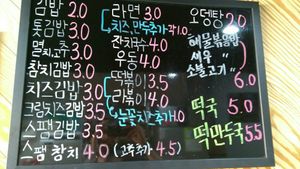 김밥 2.0
톳김밥 3.0
멸치고추 3.0
참치김밥 3.0
치즈김밥 3.0
크림치즈김밥 3.5
스팸김밥 3.5
스팸참치 4.0 (고추추가 4.5)
라면 3.0
치즈,만두추가 각 1.0
잔치국수 4.0
우동 4.0
떡볶이 3.5
라볶이 4.0
눈꽃치즈추가 1.0
오뎅탕 2.0
해물볶음밥
새우 〃
소불고기 〃
6.0
떡국 5.0
떡만두국 5.5